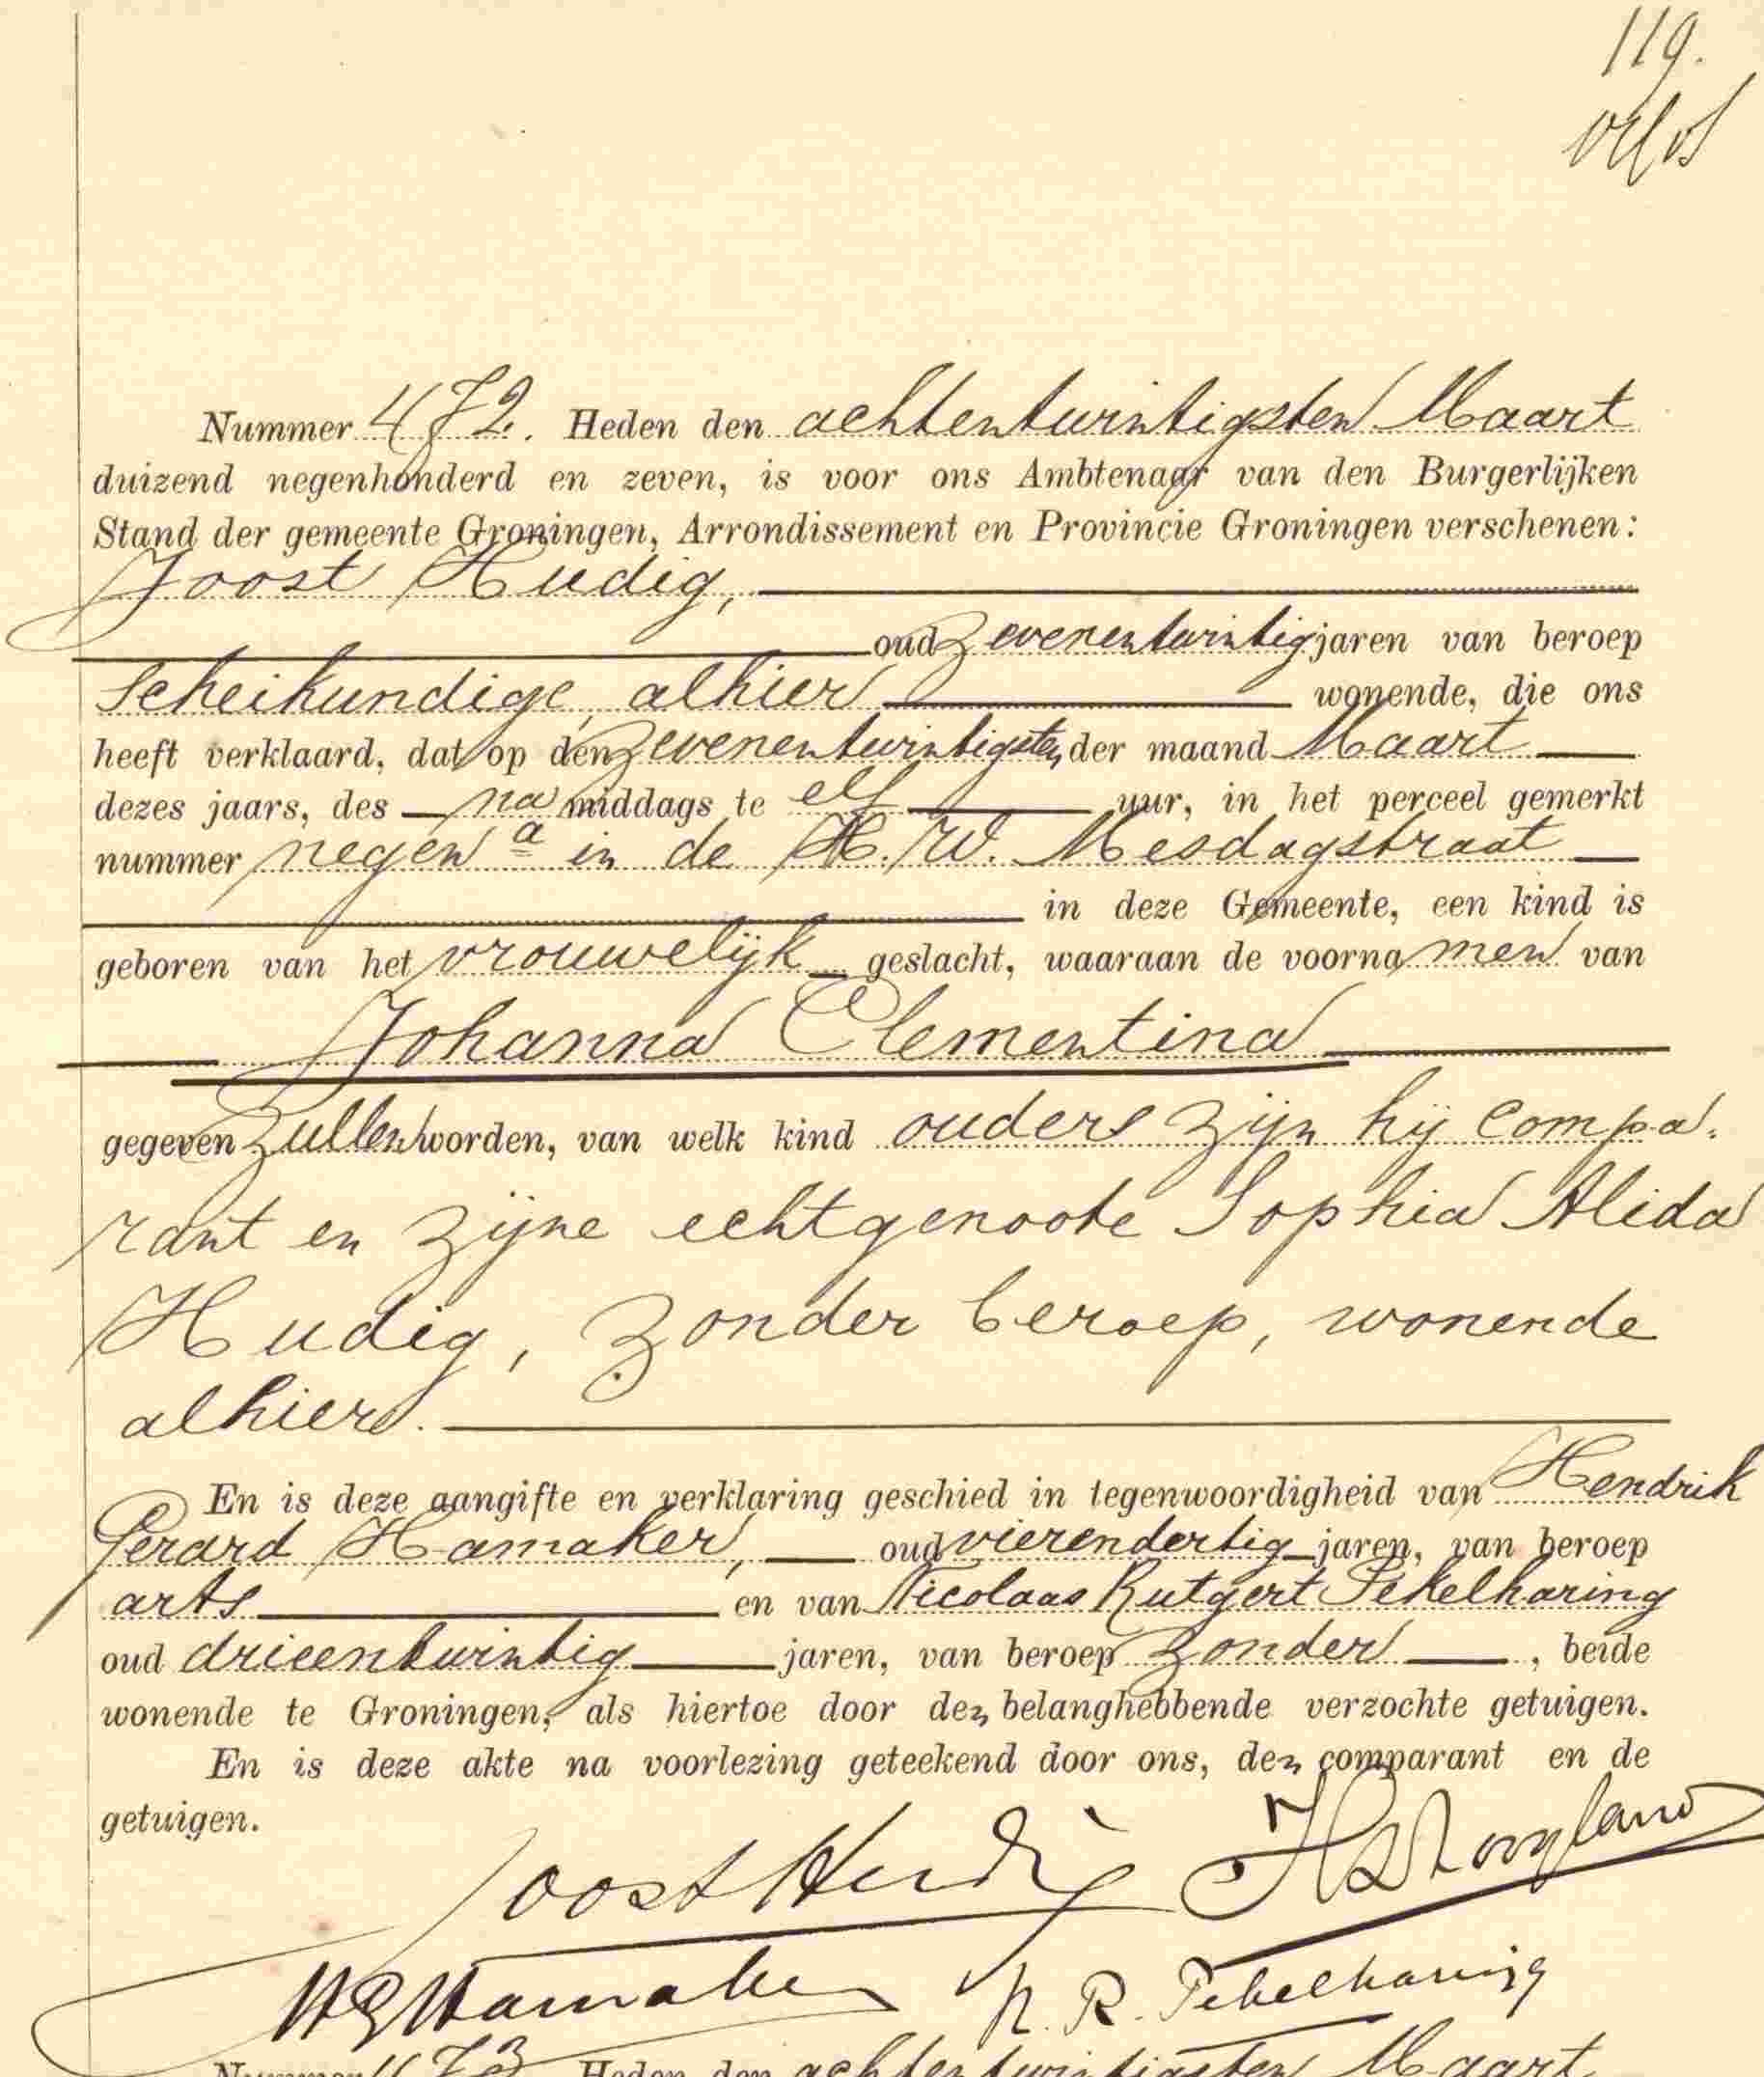 119.
Nummer 472. Heden den achtentwintigsten Maart
duizend negenhonderd en zeven, is voor ons Ambtenaar van den Burgerlijken
Stand der gemeente Groningen, Arrondissement en Provincie Groningen verschenen:
Joost Hudig,
oud zevenentwintig jaren van beroep
scheikundige, alhier wonende, die ons
heeft verklaard, dat op den zevenentwintigsten der maand Maart
dezes jaars, des na middags te elf uur, in het perceel gemerkt
nummer negen a in de H. W. Mesdagstraat
in deze Gemeente, een kind is
geboren van het vrouwelijk geslacht, waaraan de voornamen van
Johanna Clementina
gegeven zullen worden, van welk kind ouders zijn hij compa-
rant en zijne echtgenoote Sophia Alida
Hudig, zonder beroep, wonende
alhier.
En is deze aangifte en verklaring geschied in tegenwoordigheid van Hendrik
Gerard Hamaker, oud vierendertig jaren, van beroep
arts en van Nicolaas Rutgert Pekelharing
oud drieentwintig jaren, van beroep zonder, beide
wonende te Groningen, als hiertoe door den belanghebbende verzochte getuigen.
En is deze akte na voorlezing geteekend door ons, den comparant en de
getuigen.
Joost Hudig
HGHamaker N. R. Pekelharing
Nummer 473 Heden den achtentwintigsten Maart